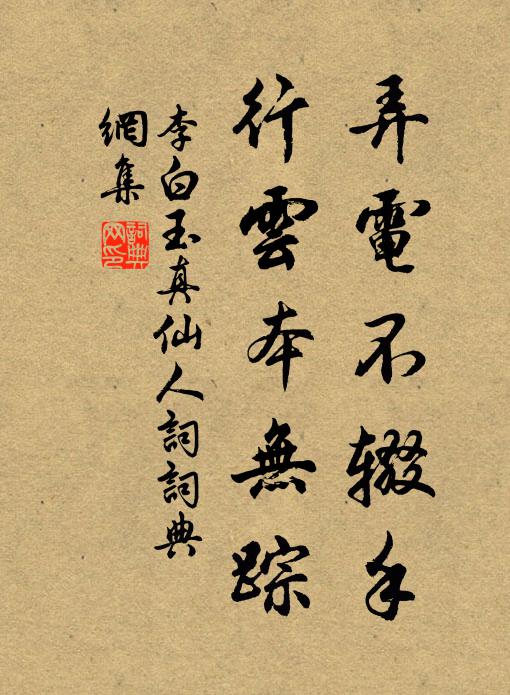 弄電不辍手
行雲本無踪
李白玉真仙人詞詞典
網集
詞典
网印